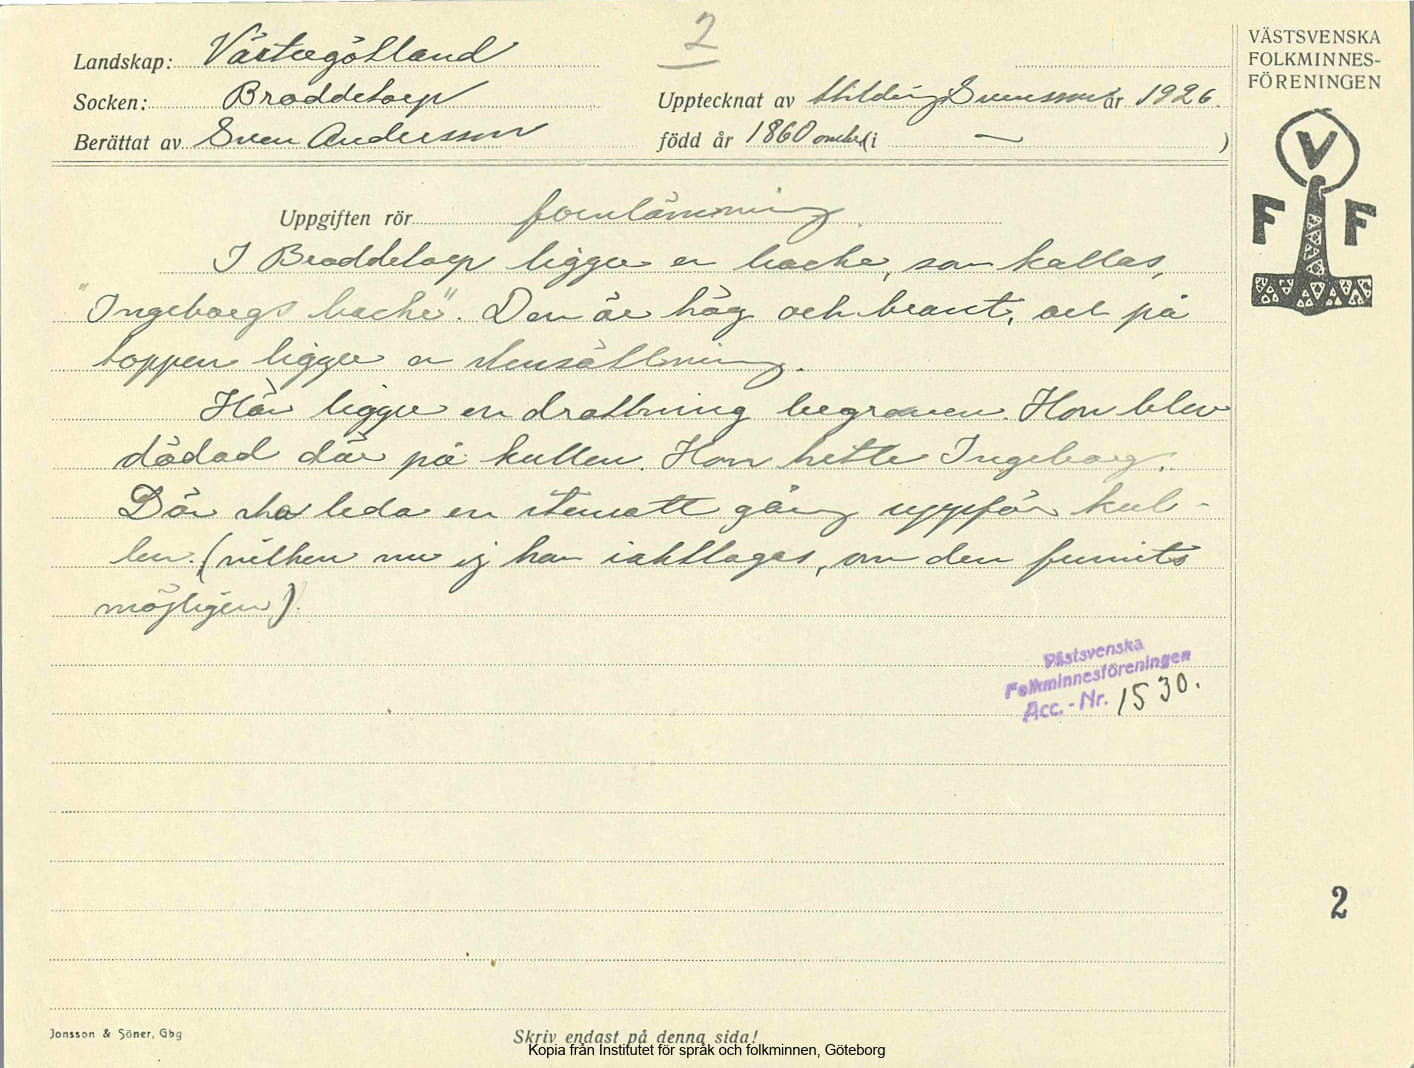 2
Landskap: Västergötland
Socken: Broddetorp
Upptecknat av Hilding Svensson år 1926.
Berättat av Sven Andersson
född år 1860 omkr. (i — )
VÄSTSVENSKA
FOLKMINNES-
FÖRENINGEN
V
F F
Uppgiften rör fornlämning
I Broddetorp ligger en backe, som kallas,
"Ingeborgs backe". Den är hög och brant, och på
toppen ligger en stensättning.
Här ligger en drottning begraven. Hon blev
dödad där på kullen. Hon hette Ingeborg.
Där ska leda en stensatt gång uppför kul-
len. (vilken nu ej kan iakttagas, om den funnits
möjligen).
Västsvenska
Folkminnesföreningen
Acc. - Nr. 1530.
2
Jonsson & Söner, Gbg
Skriv endast på denna sida!
Kopia från Institutet för språk och folkminnen, Göteborg